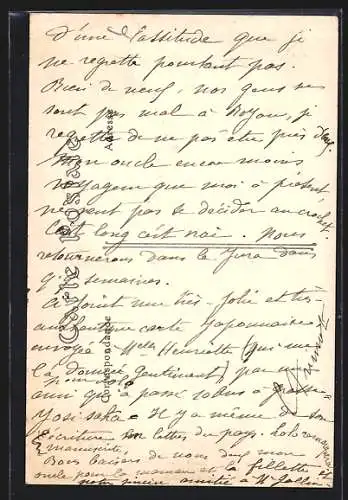 d'une lassitude que je
ne regrette pourtant pas.
Rien de neuf, nos gens ne
sont pas mal à Royan, je
regrette de ne pas être près d'eux
Mon oncle encore moins
voyageur que moi à présent
ne peut pas se décider au
C'est long c'est vrai. Nous
retournerons dans le Jura dans
qq. semaines.
Ci joint une très jolie et très
carte Japonnaise
envoyée à Melle Henriette (qui me
la donne gentiment) par
pour toi
ami qui a passé
Yosiseka - Il y a même de son
écriture en lettres du pays.
manuscrite,
Bons baisers de nous deux mon
oncle pour ta maman et la fillette et
notre sincère amitié à Mr
Carte Postale
Correspondance
Adresse